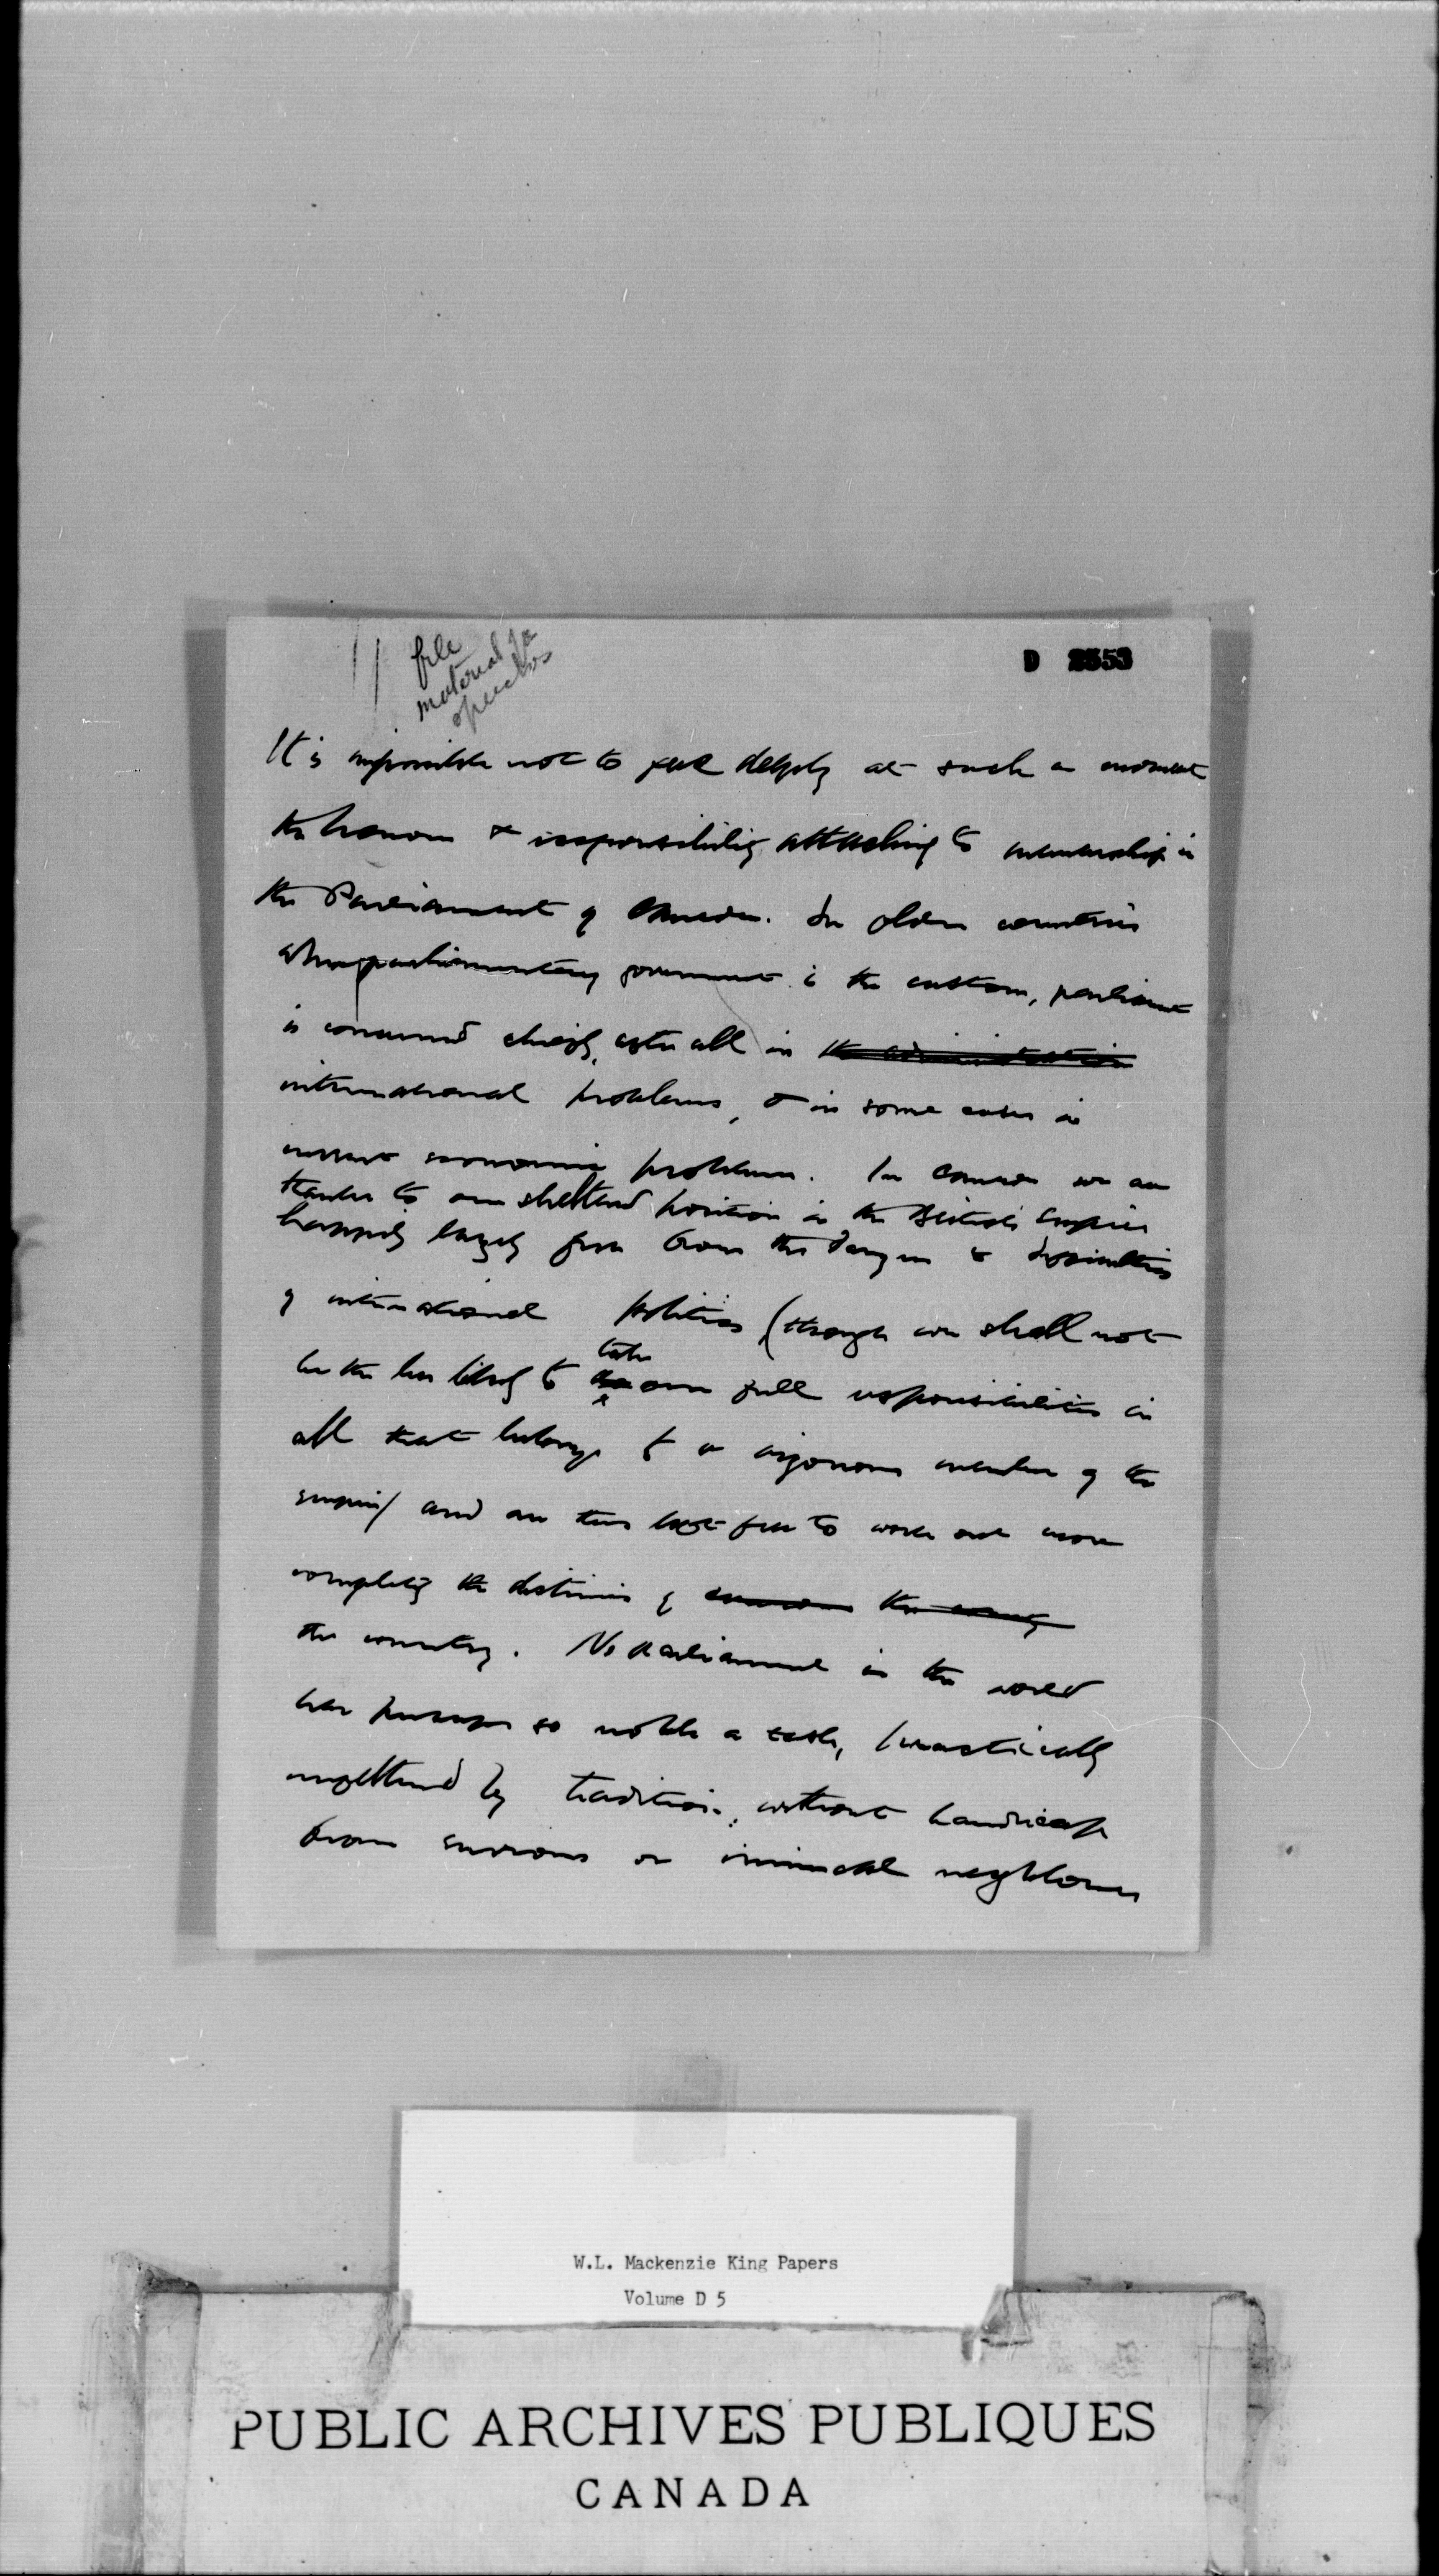 file
material for
speeches
D 2553
It is impossible not to feel deeply at such a moment
the honour & responsibility attaching to membership in
the Parliament of Canada. In older countries
where parliamentary government is the custom, parliament
is concerned chiefly, after all in the administration
international problems, & in some cases in
economic problems. In Canada we are
thanks to our sheltered position in the British Empire
happily largely free from the dangers & difficulties
of international politics (though we shall not
be the less likely to take our full responsibilities in
all that belongs to a vigorous member of the
empire) and are thus left free to work out more
completely the destinies of the
the country. No parliament in the world
has perhaps so noble a task, practically
unfettered by tradition, without handicap
from envious or inimical neighbours
W.L. Mackenzie King Papers
Volume D 5
PUBLIC ARCHIVES PUBLIQUES
CANADA